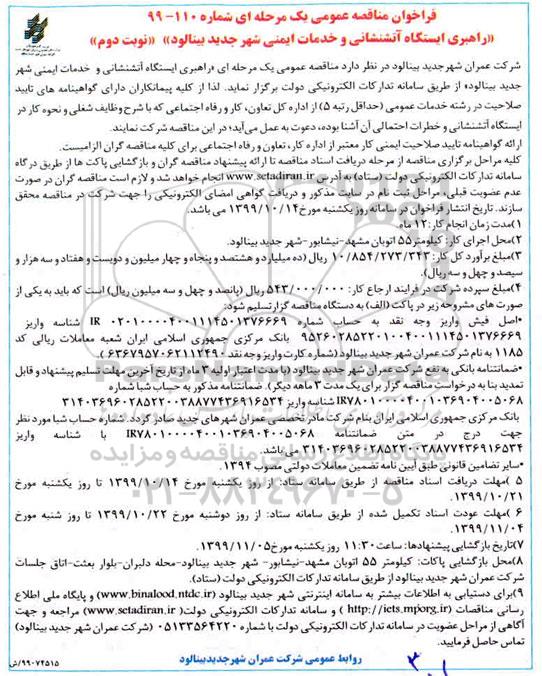 فراخوان مناقصه عمومی یک مرحله ای شماره ۱۱۰-۹۹
«راهبری ایستگاه آتشنشانی و خدمات ایمنی شهر جدید بینالود» «نوبت دوم»
شرکت عمران شهرجدید بینالود در نظر دارد مناقصه عمومی یک مرحله ای «راهبری ایستگاه آتشنشانی و خدمات ایمنی شهر
جدید بینالود» از طریق سامانه تدارکات الکترونیکی دولت برگزار نماید. لذا از کلیه پیمانکاران دارای گواهینامه های تایید
صلاحیت در رشته خدمات عمومی (حداقل رتبه ۵) از اداره کل تعاون، کار و رفاه اجتماعی که با شرح وظایف شغلی و نحوه کار در
ایستگاه آتشنشانی و خطرات احتمالی آن آشنا بوده، دعوت به عمل می‌آید؛ در این مناقصه شرکت نمایند.
ارائه گواهینامه تایید صلاحیت ایمنی کار معتبر از اداره کار، تعاون و رفاه اجتماعی برای کلیه مناقصه گران الزامیست.
کلیه مراحل برگزاری مناقصه از مرحله دریافت اسناد مناقصه تا ارائه پیشنهاد مناقصه گران و بازگشایی پاکت ها از طریق درگاه
سامانه تدارکات الکترونیکی دولت (ستاد) به آدرس www.setadiran.ir انجام خواهد شد و لازم است مناقصه گران در صورت
عدم عضویت قبلی، مراحل ثبت نام در سایت مذکور و دریافت گواهی امضای الکترونیکی را جهت شرکت در مناقصه محقق
سازند. تاریخ انتشار فراخوان در سامانه روز یکشنبه مورخ ۱۳۹۹/۱۰/۱۴ می باشد.
۱)مدت زمان انجام کار: ۱۲ ماه.
۲)محل اجرای کار: کیلومتر ۵۵ اتوبان مشهد-نیشابور-شهر جدید بینالود.
۳)مبلغ برآورد کل کار: ۱۰/۸۵۴/۲۷۳/۳۴۳ ریال (ده میلیارد و هشتصد و پنجاه و چهار میلیون و دویست و هفتاد و سه هزار و
سیصد و چهل و سه ریال).
۴)مبلغ سپرده شرکت در فرایند ارجاع کار: ۵۴۳/۰۰۰/۰۰۰ ریال (پانصد و چهل و سه میلیون ریال) است که باید به یکی از
صورت های مشروحه زیر در پاکت (الف) به دستگاه مناقصه گزار تسلیم شود:
•اصل فیش واریز وجه نقد به حساب شماره IR ۰۲۰۱۰۰۰۰۴۰۰۱۱۱۴۵۰۱۳۷۶۶۶۹ شناسه واریز
۹۵۲۶۰۲۸۵۲۲۰۱۰۰۴۰۰۱۱۱۴۵۰۱۳۷۶۶۶۹ بانک مرکزی جمهوری اسلامی ایران شعبه معاملات ریالی کد
۱۱۸۵ به نام شرکت عمران شهر جدید بینالود (شماره کارت واریز وجه نقد ۶۳۶۷۹۵۷۰۶۲۱۱۲۴۹۰).
•ضمانتنامه بانکی به نفع شرکت عمران شهر جدید بینالود (با مدت اعتبار اولیه ۳ ماه از تاریخ آخرین مهلت تسلیم پیشنهاد و قابل
تمدید بنا به درخواست مناقصه گزار برای یک مدت ۳ ماهه دیگر). ضمانتنامه مذکور به حساب شبا شماره
IR۷۸۰۱۰۰۰۰۴۰۰۱۰۳۶۹۰۴۰۰۵۰۶۸ شناسه واریز ۳۱۴۰۳۶۹۶۰۲۸۵۲۲۰۰۳۸۸۷۷۴۳۶۹۱۶۵۳۴
بانک مرکزی جمهوری اسلامی ایران بنام شرکت مادر تخصصی عمران شهرهای جدید صادر گردد. شماره حساب شبا مورد نظر
جهت درج در متن ضمانتنامه IR۷۸۰۱۰۰۰۰۴۰۰۱۰۳۶۹۰۴۰۰۵۰۶۸ با شناسه واریز
۳۱۴۰۳۶۹۶۰۲۸۵۲۲۰۰۳۸۸۷۷۴۳۶۹۱۶۵۳۴ می باشد.
•سایر تضامین قانونی طبق آیین نامه تضمین معاملات دولتی مصوب ۱۳۹۴.
۵)مهلت دریافت اسناد مناقصه از طریق سامانه ستاد: از روز یکشنبه مورخ ۱۳۹۹/۱۰/۱۴ تا روز یکشنبه مورخ
۱۳۹۹/۱۰/۲۱.
۶)مهلت عودت اسناد تکمیل شده از طریق سامانه ستاد: از روز دوشنبه مورخ ۱۳۹۹/۱۰/۲۲ تا روز شنبه مورخ
۱۳۹۹/۱۱/۰۴.
۷)تاریخ بازگشایی پیشنهادها: ساعت ۱۱:۳۰ روز یکشنبه مورخ ۱۳۹۹/۱۱/۰۵.
۸)محل بازگشایی پاکات: کیلومتر ۵۵ اتوبان مشهد-نیشابور- شهر جدید بینالود-محله دلبران-بلوار بعثت-اتاق جلسات
شرکت عمران شهر جدید بینالود از طریق سامانه تدارکات الکترونیکی دولت (ستاد).
۹)برای دستیابی به اطلاعات بیشتر به سامانه اینترنتی شهر جدید بینالود (www.binalood.ntdc.ir) و پایگاه ملی اطلاع
رسانی مناقصات (http://iets.mporg.ir) و سامانه تدارکات الکترونیکی دولت (www.setadiran.ir) مراجعه و جهت
آگاهی از مراحل عضویت در سامانه تدارکات الکترونیکی دولت با شماره ۰۵۱۳۳۵۶۴۲۲۰ (شرکت عمران شهر جدید بینالود)
تماس حاصل فرمایید.
روابط عمومی شرکت عمران شهرجدیدبینالود
۹۹۰۷۴۵۱۵/ش
۰۲۱-۸۸۳۴۹۶۷۰-۵